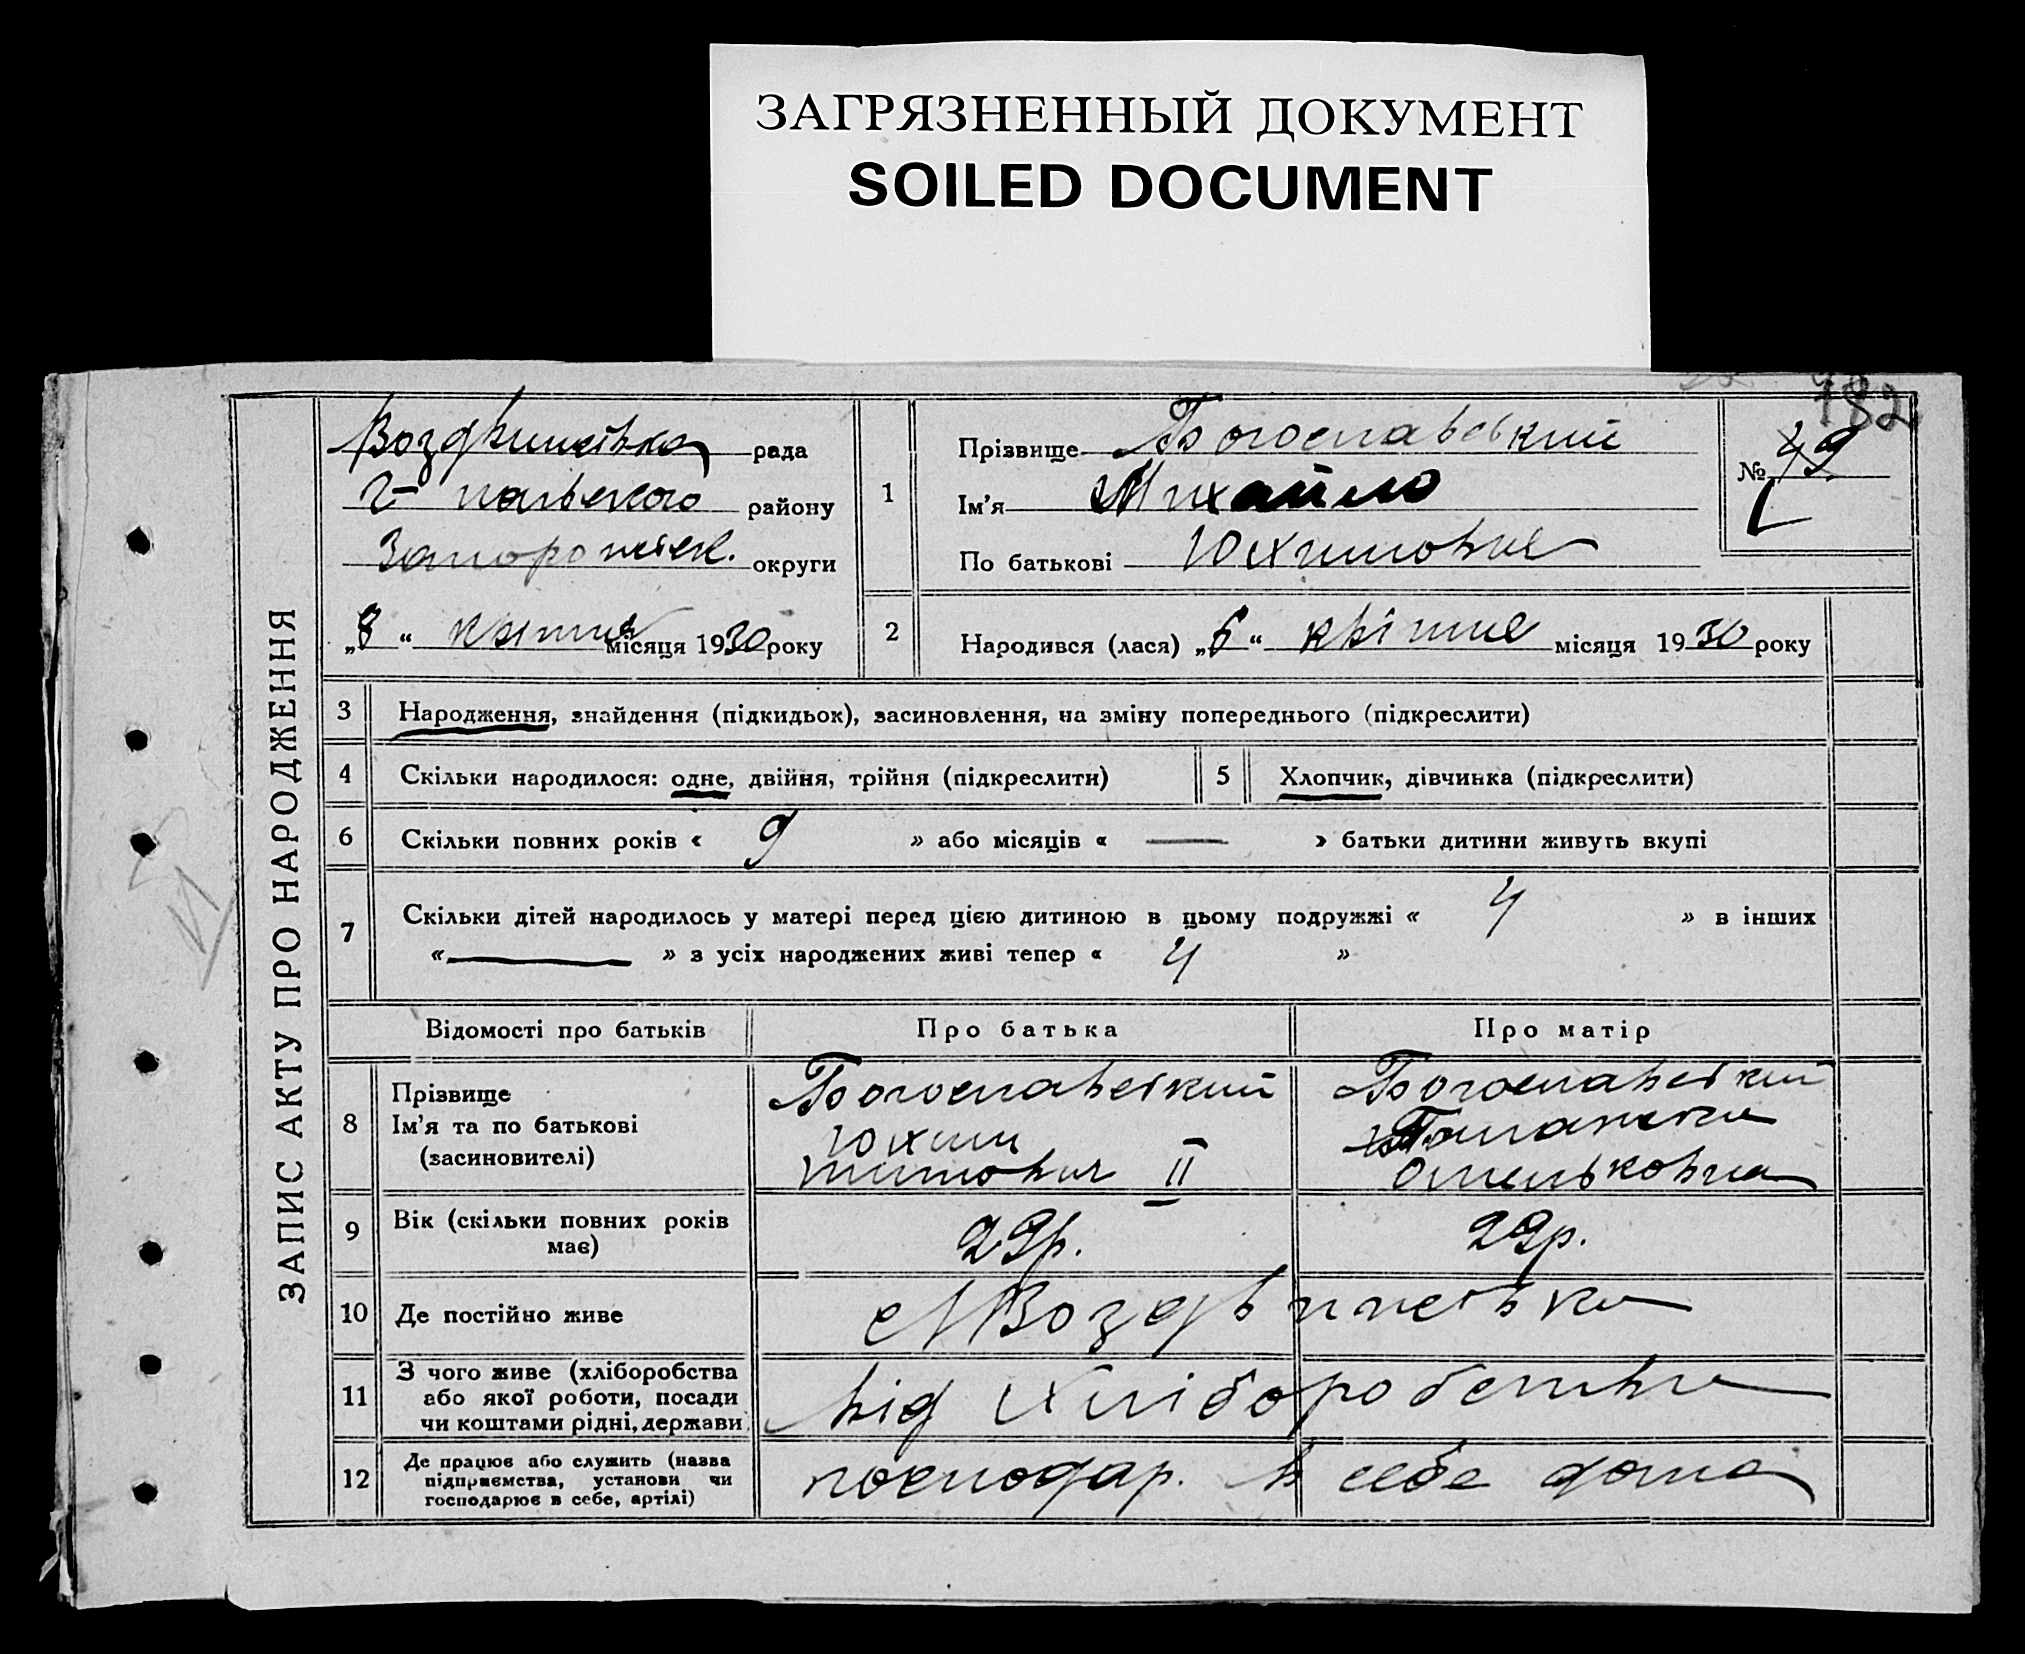 ЗАГРЯЗНЕННЫЙ ДОКУМЕНТ
SOILED DOCUMENT
182
ЗАПИС АКТУ ПРО НАРОДЖЕННЯ
Воздвижівка рада
Г-польского району
Запоріжськ. округи
„8“ квітня місяця 1930 року
1
Прізвище Богославський
Ім'я Михайло
По батькові Юхимович
№ 49
2
Народився (лася) „6“ квітня місяця 1930 року
3 Народження, знайдення (підкидьок), засиновлення, на зміну попереднього (підкреслити)
4 Скільки народилося: одне, двійня, трійня (підкреслити)
5 Хлопчик, дівчинка (підкреслити)
6 Скільки повних років « 9 » або місяців « — » батьки дитини живуть вкупі
7 Скільки дітей народилось у матері перед цією дитиною в цьому подружжі « 4 » в інших
« — » з усіх народжених живі тепер « 4 »
Відомості про батьків Про батька Про матір
8 Прізвище
Ім'я та по батькові
(засиновителі)
Богославський
Юхим
Титович II
Богославський
Омельковна
9 Вік (скільки повних років
має)
29р. 29р.
10 Де постійно живе Воздвижівка
11 З чого живе (хліборобства
або якої роботи, посади
чи коштами рідні, держави
від хліборобства
12 Де працює або служить (назва
підприємства, установи чи
господарює в себе, артілі)
господар. в себе дома